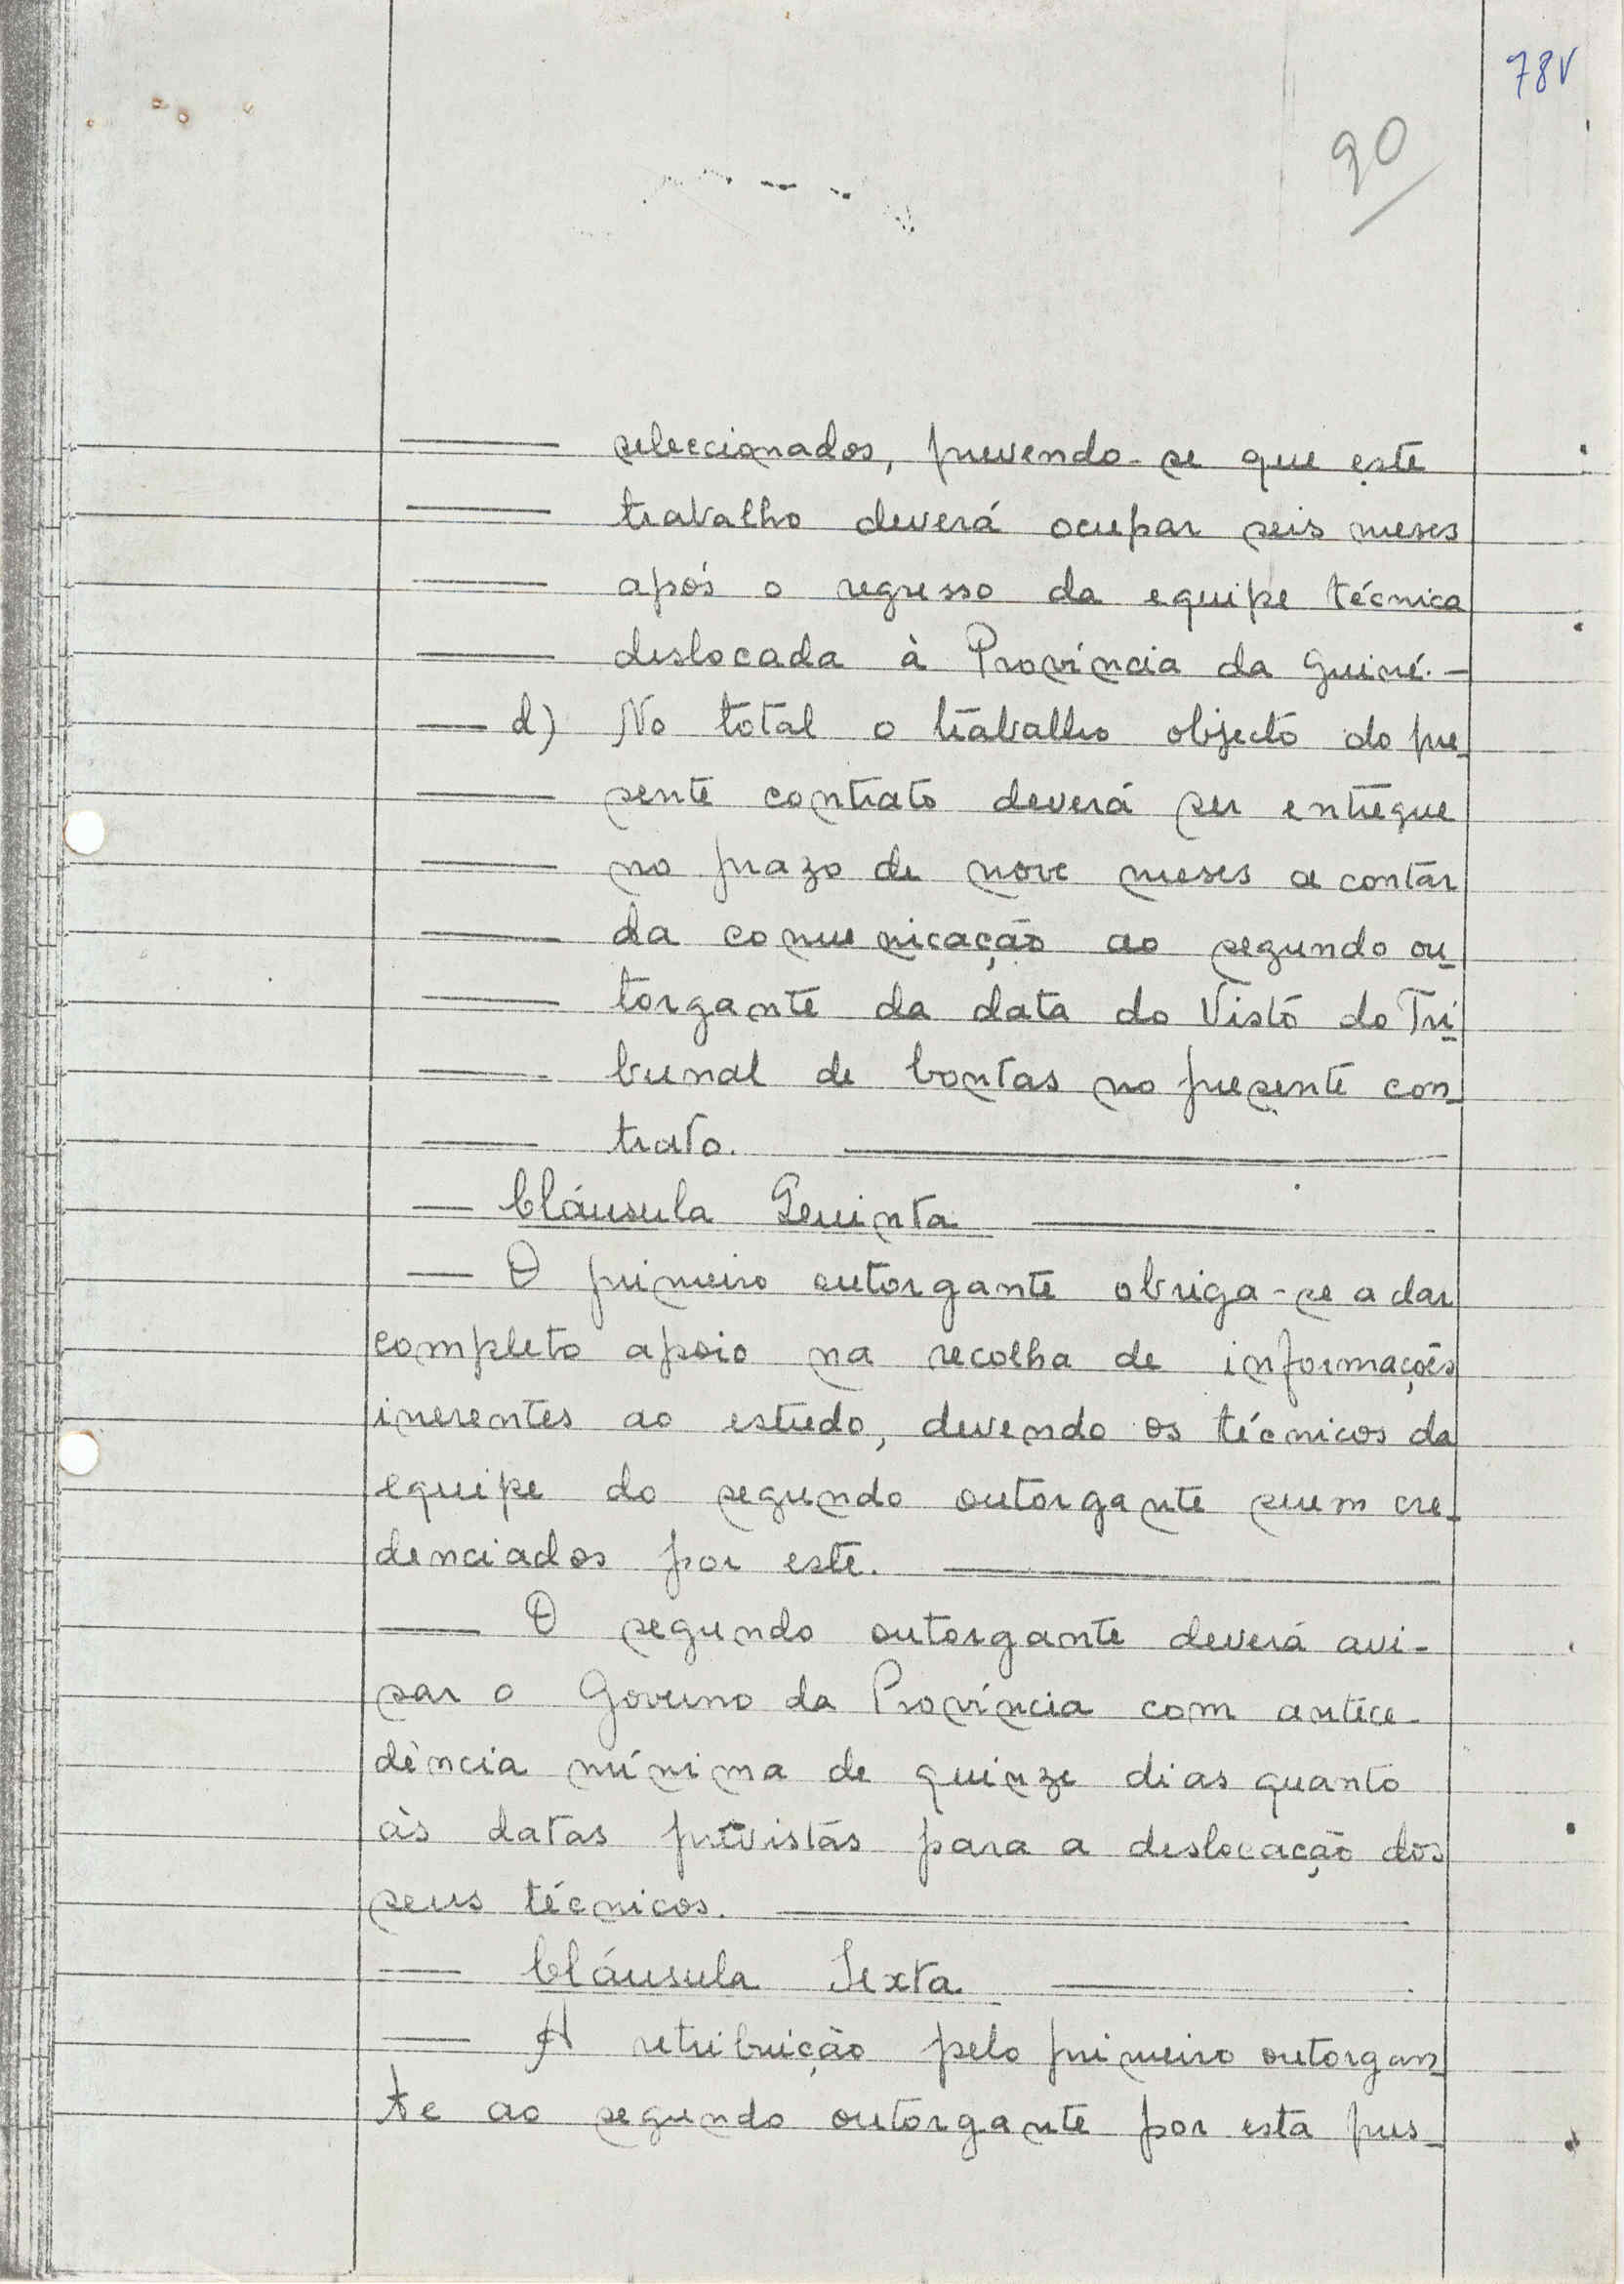 78V
90
—— seleccionados, prevendo-se que este
—— trabalho deverá ocupar seis meses
—— após o regresso da equipe técnica
—— deslocada à Província da Guiné. —
— d) No total o trabalho objecto do pre-
—— sente contrato deverá ser entregue
—— no prazo de nove meses a contar
—— da comunicação ao segundo ou-
—— torgante da data do Visto do Tri-
—— bunal de Contas no presente con-
—— trato. ——
— Cláusula Quinta ——
— O primeiro outorgante obriga-se a dar
completo apoio na recolha de informações
inerentes ao estudo, devendo os técnicos da
equipe do segundo outorgante serem cre-
denciados por este. ——
—— O segundo outorgante deverá avi-
sar o Governo da Província com antece-
dência mínima de quinze dias quanto
às datas previstas para a deslocação dos
seus técnicos. ——
— Cláusula Sexta ——
—— A retribuição pelo primeiro outorgan-
te ao segundo outorgante por esta pres-